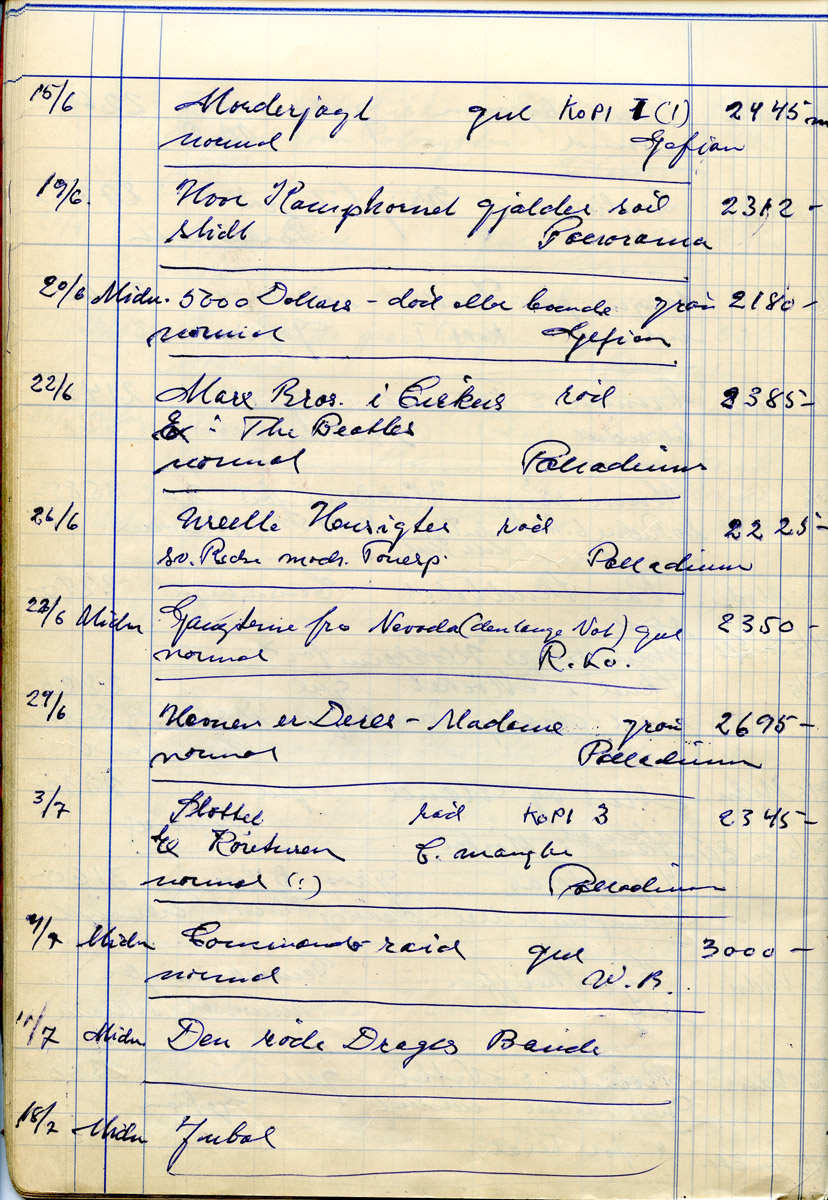 15/6 Morderjagt gul KOPI I (!) 2445 m
normal Gefion
19/6. Hvor Kamphornet gjalder röd 2312 -
slidt Panorama
20/6 Midn. 5000 Dollars - död eller levende grön 2180 -
normal Gefion
22/6 Marx Bros. i Cirkus röd 2385 -
: The Beatles
normal Palladium
26/6 röd 2225 -
Palladium
27/6 Midn fra Nevada (den lange Nat) gul 2350 -
normal R.Ko.
29/6 Havnen er Deres - Madame grön 2695 -
normal Palladium
3/7 Slottet röd KOPI 3 2345 -
Køreturen
normal (!) Palladium
Midn Commando raid gul 3000 -
normal W.B.
11/7 Midn. Den röde Drages Bande
18/7 Midn Jubal